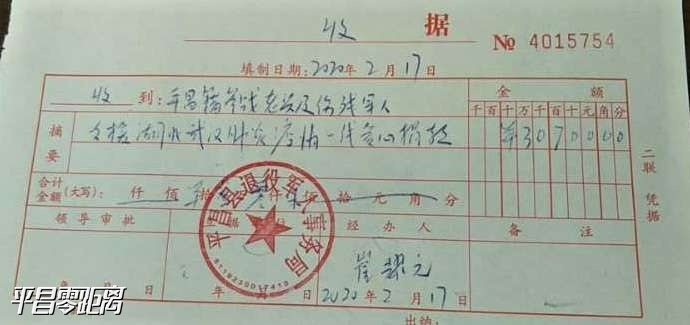 收 据
№ 4015754
填制日期：2020年2月17日
收 到：平昌籍参战老兵及伤残军人
金 额
千 百 十 万 千 百 十 元 角 分
摘要
支援湖北武汉肺炎疫情一线爱心捐款
¥ 3 0 7 0 0 0 0
二联 凭据
合计金额（大写）： 仟 佰 拾 仟 拾 元 角 分
领导审批
经办人
备 注
平昌县退役军人事务局
崔
年 月 日
年
2020年2月17日
平昌零距离
出纳：